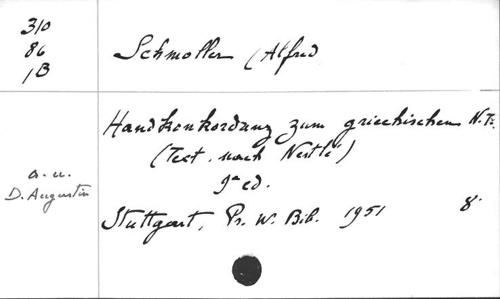 310
86
1B
Schmoller (Alfred
Handkonkordanz zum griechischen N.T.
(Text nach Nestle)
9a ed.
a. u.
D. Augustin
Stuttgart, Pr. W. Bib. 1951 8°